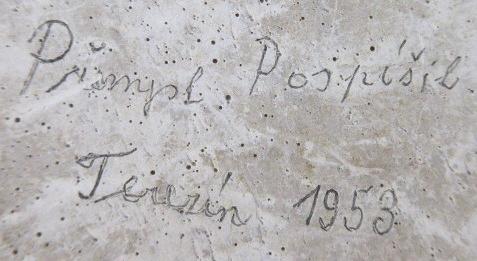 Přimysl. Pospíšil.
Terezín 1953